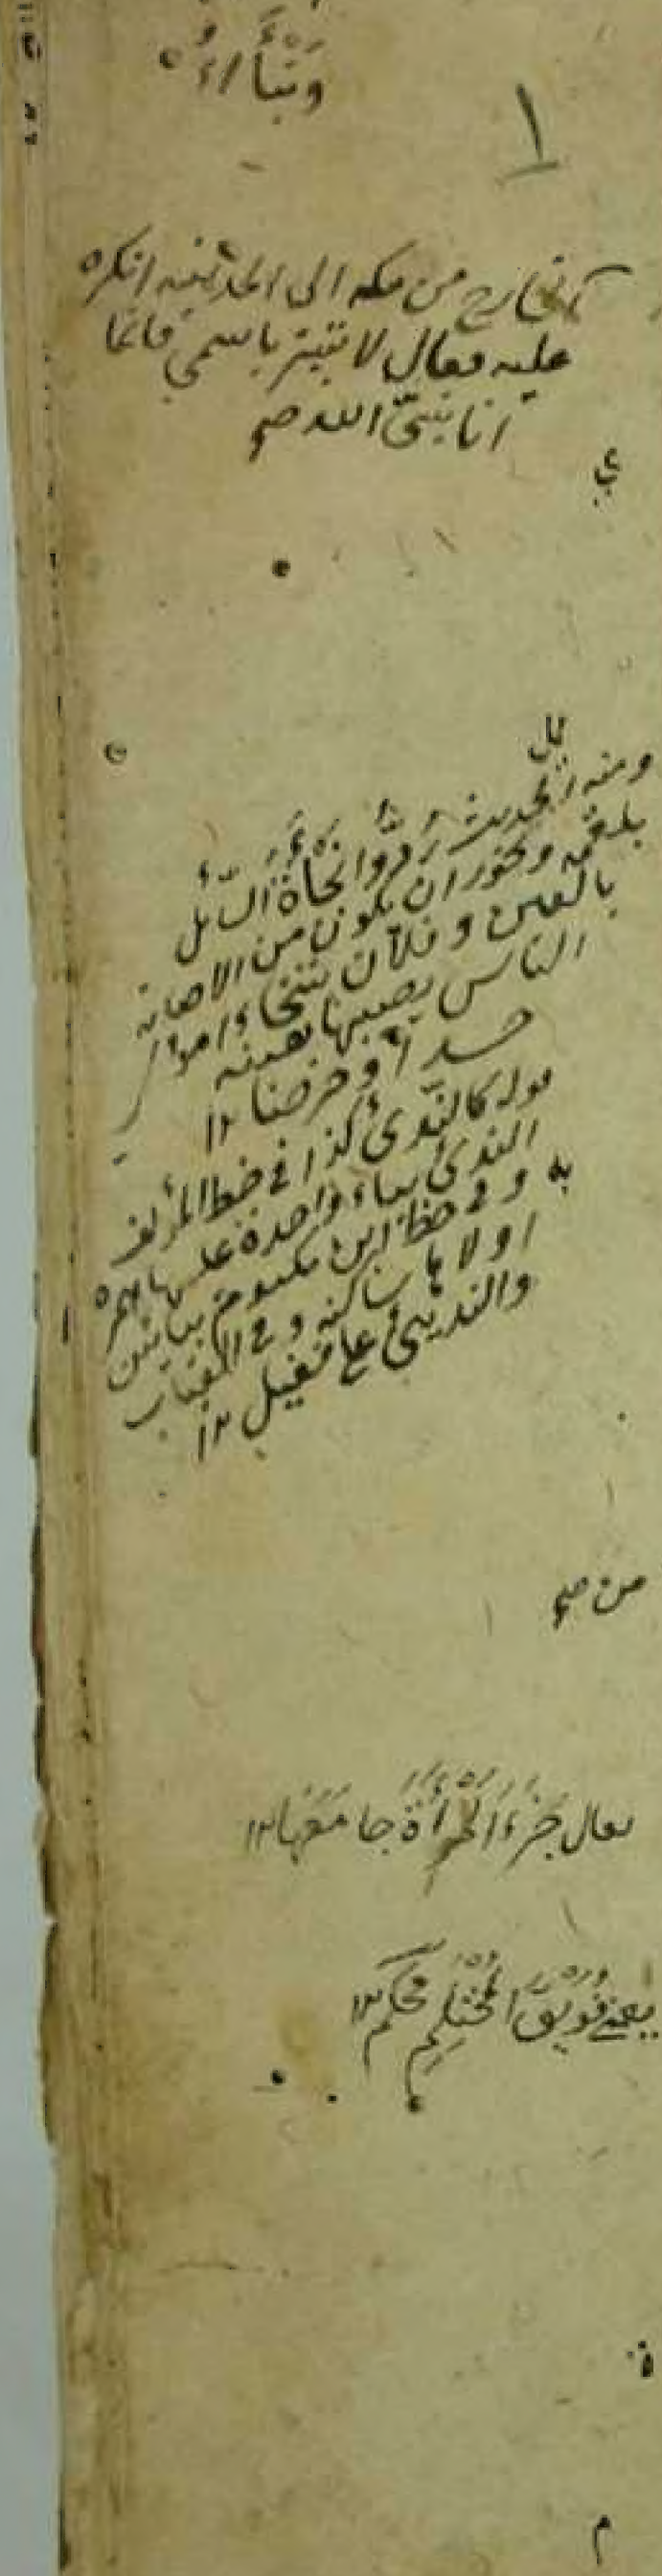 وَنَبْأَاءُ
١
الخارج من مكه الى المدينه انكره
عليه فقال لا تنبز باسمي فانما
انا نبيّ الله صح
ومنه الحديث رُدُّوا نَجْأَةَ السّائل
بلقمه ويجوز ان يكون من الاصابة
بالعين وفلان ينتجاء اموال
الناس يصيبها بعينه
حسدا او حرصا ١٢
قوله كذا في خط المؤلف
بياء واحدة عليها همزه
وفي خط ابن مكتوم بيائين
اولاها ساكنه وفي
على فعيل ١٢
من صح
يقال جَزَءَ الْمَرْأَةَ جَامَعَهَا ١٢
يعني فُوَيْقَ الْمُحْتَلِمِ محكم ١٢
م